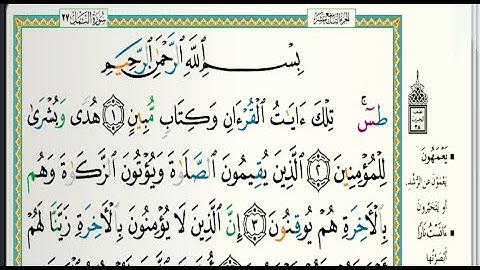 سورة النمل ٢٧
الجزء التاسع عشر
بِسْمِ اللَّهِ الرَّحْمَٰنِ الرَّحِيمِ
طسٓ ۚ تِلْكَ ءَايَٰتُ ٱلْقُرْءَانِ وَكِتَابٍ مُّبِينٍ ۝١ هُدًى وَبُشْرَىٰ
لِلْمُؤْمِنِينَ ۝٢ ٱلَّذِينَ يُقِيمُونَ ٱلصَّلَوٰةَ وَيُؤْتُونَ ٱلزَّكَوٰةَ وَهُم
بِٱلْءَاخِرَةِ هُمْ يُوقِنُونَ ۝٣ إِنَّ ٱلَّذِينَ لَا يُؤْمِنُونَ بِٱلْءَاخِرَةِ زَيَّنَّا لَهُمْ
الحزب
٣٨
يَعْمَهُونَ
يَعْمَوْنَ عَنِ الرُّشْدِ
أو يَتَحَيَّرُونَ
ءَانَسْتُ نَارًا
أَبْصَرْتُهَا